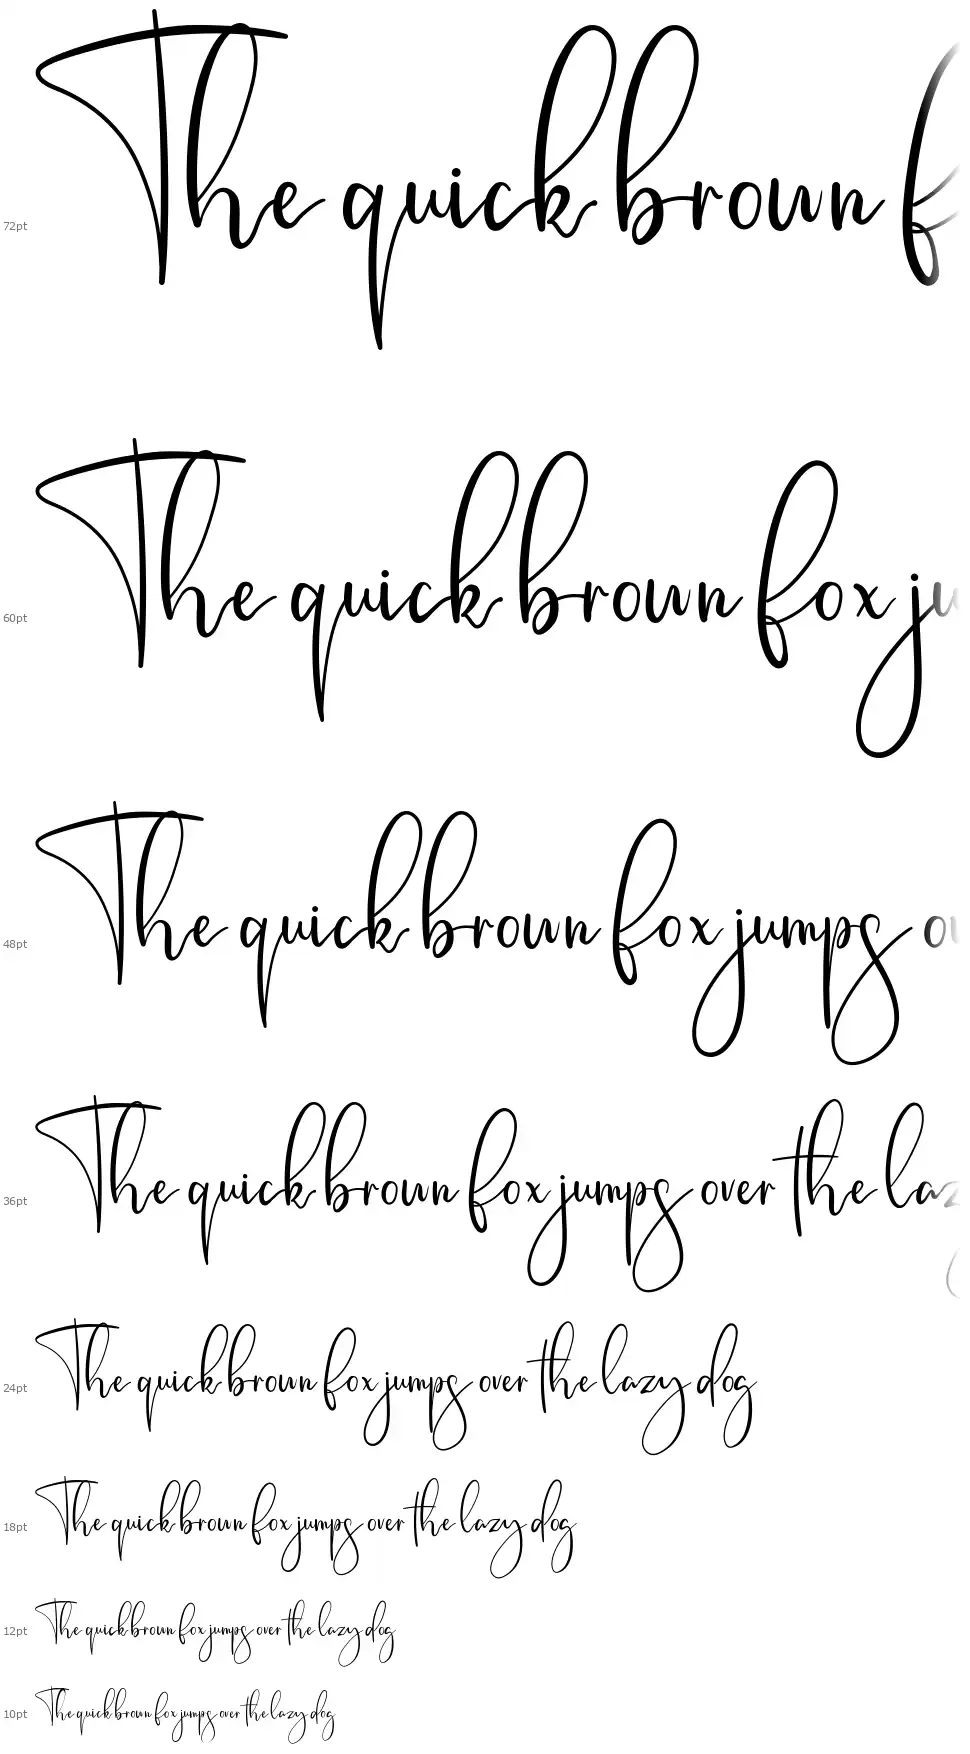 72pt The quick brown f
60pt The quick brown fox ju
48pt The quick brown fox jumps ov
36pt The quick brown fox jumps over the laz
24pt The quick brown fox jumps over the lazy dog
18pt The quick brown fox jumps over the lazy dog
12pt The quick brown fox jumps over the lazy dog
10pt The quick brown fox jumps over the lazy dog